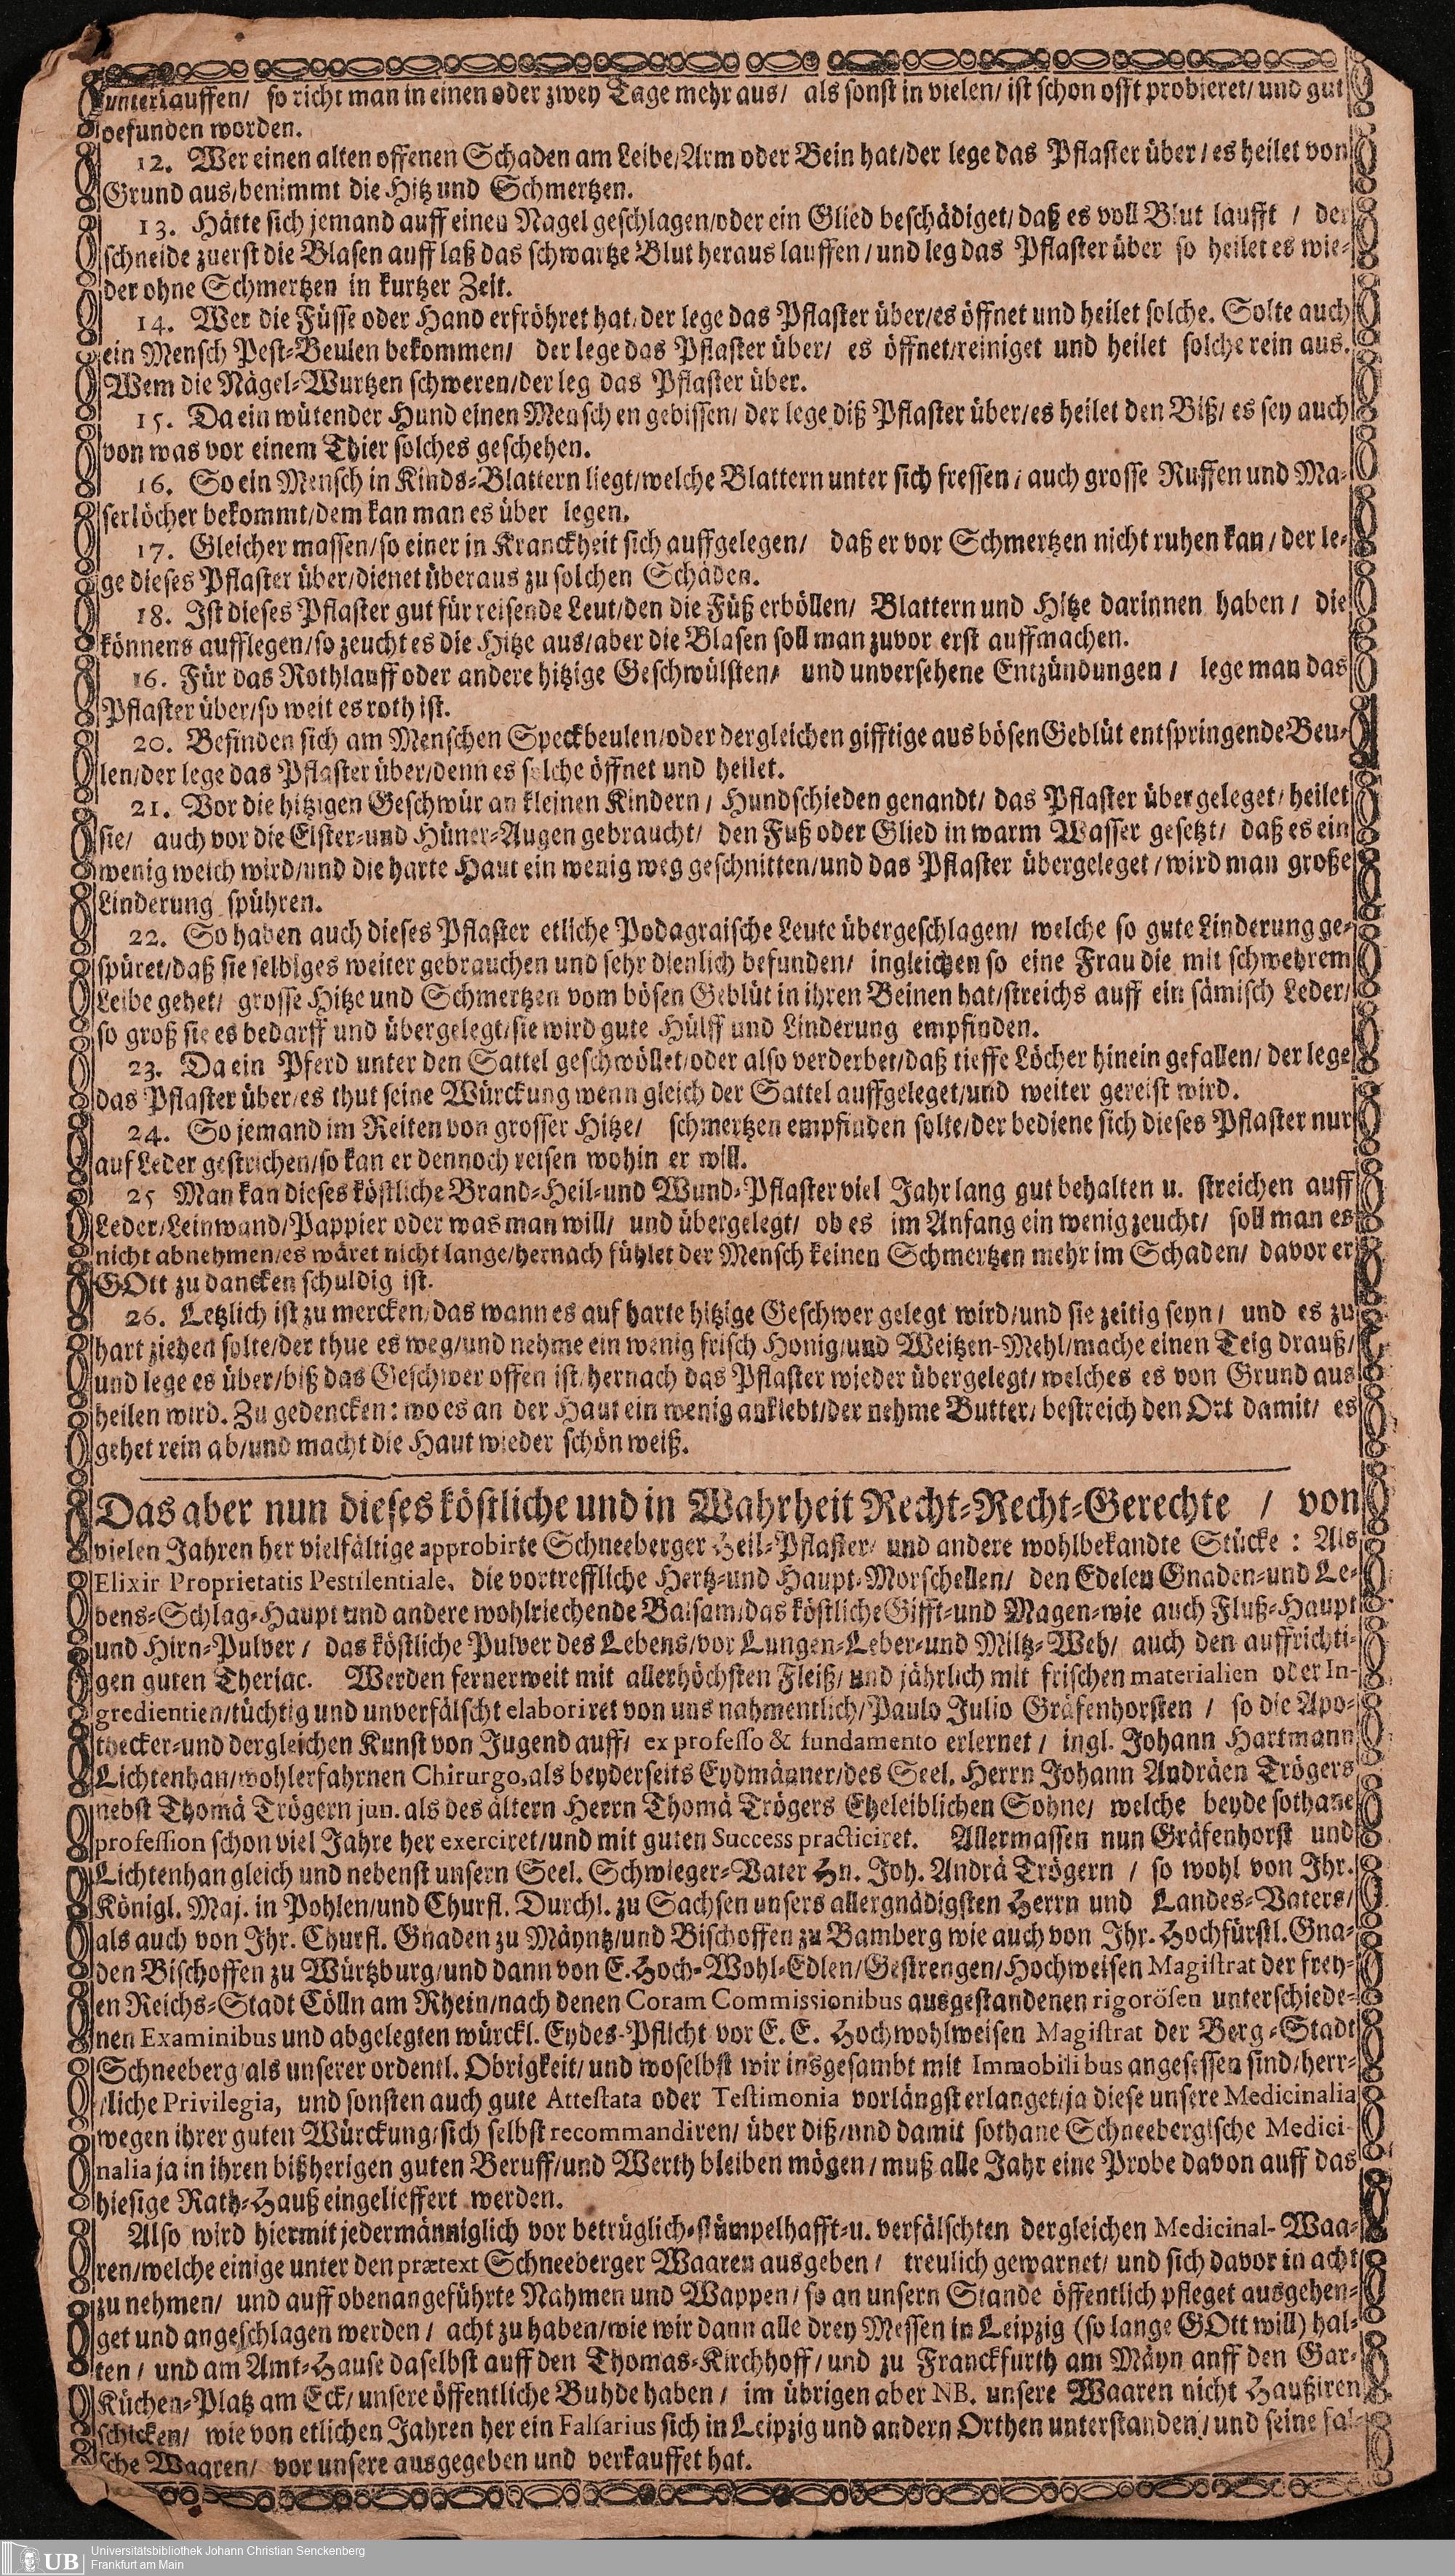 unterlauffen/ so richt man in einen oder zwey Tage mehr aus/ als sonst in vielen/ ist schon offt probieret/ und gut
gefunden worden.
12. Wer einen alten offenen Schaden am Leibe/Arm oder Bein hat/der lege das Pflaster über/es heilet von
Grund aus/benimmt die Hitz und Schmertzen.
13. Hätte sich jemand auff einen Nagel geschlagen/oder ein Glied beschädiget/daß es voll Blut laufft / der
schneide zuerst die Blasen auff laß das schwartze Blut heraus lauffen/und leg das Pflaster über so heilet es wie-
der ohne Schmertzen in kurtzer Zeit.
14. Wer die Füsse oder Hand erfröhret hat/der lege das Pflaster über/es öffnet und heilet solche. Solte auch
ein Mensch Pest-Beulen bekommen/ der lege das Pflaster über/ es öffnet/reiniget und heilet solche rein aus.
Wem die Nägel-Wurtzen schweren/der leg das Pflaster über.
15. Da ein wütender Hund einen Menschen gebissen/ der lege diß Pflaster über/es heilet den Biß/ es sey auch
von was vor einem Thier solches geschehen.
16. So ein Mensch in Kinds-Blattern liegt/welche Blattern unter sich fressen/auch grosse Ruffen und Ma-
serlöcher bekommt/dem kan man es über legen.
17. Gleicher massen/so einer in Kranckheit sich auffgelegen/ daß er vor Schmertzen nicht ruhen kan/der le-
ge dieses Pflaster über/dienet überaus zu solchen Schäden.
18. Ist dieses Pflaster gut für reisende Leut/den die Füß erböllen/ Blattern und Hitze darinnen haben/ die
könnens aufflegen/so zeucht es die Hitze aus/aber die Blasen soll man zuvor erst auffmachen.
16. Für das Rothlauff oder andere hitzige Geschwülsten/ und unversehene Entzündungen/ lege man das
Pflaster über/so weit es roth ist.
20. Befinden sich am Menschen Speckbeulen/oder dergleichen gifftige aus bösen Geblüt entspringende Beu-
len/der lege das Pflaster über/denn es solche öffnet und heilet.
21. Vor die hitzigen Geschwür an kleinen Kindern/ Hundschieden genandt/ das Pflaster über geleget/heilet
sie/ auch vor die Elster-und Hüner-Augen gebraucht/ den Fuß oder Glied in warm Wasser gesetzt/ daß es ein
wenig weich wird/und die harte Haut ein wenig weg geschnitten/und das Pflaster übergeleget/wird man große
Linderung spühren.
22. So haben auch dieses Pflaster etliche Podagraische Leute übergeschlagen/ welche so gute Linderung ge-
spüret/daß sie selbiges weiter gebrauchen und sehr dienlich befunden/ ingleichen so eine Frau die mit schwehrem
Leibe gehet/ grosse Hitze und Schmertzen vom bösen Geblüt in ihren Beinen hat/streichs auff ein sämisch Leder/
so groß sie es bedarff und übergelegt/sie wird gute Hülff und Linderung empfinden.
23. Da ein Pferd unter den Sattel geschwöllet/oder also verderbet/daß tieffe Löcher hinein gefallen/ der lege
das Pflaster über/es thut seine Würckung wenn gleich der Sattel auffgeleget/und weiter gereist wird.
24. So jemand im Reiten von grosser Hitze/ schmertzen empfinden solte/der bediene sich dieses Pflaster nur
auf Leder gestrichen/so kan er dennoch reisen wohin er will.
25 Man kan dieses köstliche Brand-Heil-und Wund-Pflaster viel Jahr lang gut behalten u. streichen auff
Leder/Leinwand/Pappier oder was man will/ und übergelegt/ ob es im Anfang ein wenig zeucht/ soll man es
nicht abnehmen/es wäret nicht lange/hernach fühlet der Mensch keinen Schmertzen mehr im Schaden/ davor er
GOtt zu dancken schuldig ist.
26. Letzlich ist zu mercken/das wann es auf harte hitzige Geschwer gelegt wird/und sie zeitig seyn/ und es zu
hart ziehen solte/der thue es weg/und nehme ein wenig frisch Honig/und Weitzen-Mehl/mache einen Teig drauß/
und lege es über/biß das Geschwer offen ist/hernach das Pflaster wieder übergelegt/welches es von Grund aus
heilen wird. Zu gedencken: wo es an der Haut ein wenig anklebt/der nehme Butter/bestreich den Ort damit/ es
gehet rein ab/und macht die Haut wieder schön weiß.
Das aber nun dieses köstliche und in Wahrheit Recht-Recht-Gerechte / von
vielen Jahren her vielfältige approbirte Schneeberger Heil-Pflaster/ und andere wohlbekandte Stücke : Als
Elixir Proprietatis Pestilentiale, die vortreffliche Hertz-und Haupt-Morschellen/ den Edelen Gnaden-und Le-
bens-Schlag-Haupt und andere wohlriechende Balsam/das köstliche Gifft-und Magen-wie auch Fluß-Haupt
und Hirn-Pulver/ das köstliche Pulver des Lebens/vor Lungen-Leber-und Miltz-Weh/ auch den auffrichti-
gen guten Theriac. Werden fernerweit mit allerhöchsten Fleiß/und jährlich mit frischen materialien oder In-
gredientien/tüchtig und unverfälscht elaboriret von uns nahmentlich/Paulo Julio Gräfenhorsten / so die Apo-
thecker-und dergleichen Kunst von Jugend auff/ ex professo & fundamento erlernet / ingl. Johann Hartmann
Lichtenhan/wohlerfahrnen Chirurgo,als beyderseits Eydmänner/des Seel. Herrn Johann Andräen Trögers
nebst Thomä Trögern jun. als des ältern Herrn Thomä Trögers Eheleiblichen Sohne/ welche beyde sothane
profession schon viel Jahre her exerciret/und mit guten Success practiciret. Allermassen nun Gräfenhorst und
Lichtenhan gleich und nebenst unsern Seel. Schwieger-Vater Hn. Joh. Andrä Trögern / so wohl von Ihr.
Königl. Maj. in Pohlen/und Churfl. Durchl. zu Sachsen unsers allergnädigsten Herrn und Landes-Vaters/
als auch von Ihr. Churfl. Gnaden zu Mäyntz/und Bischoffen zu Bamberg wie auch von Ihr. Hochfürstl. Gna-
den Bischoffen zu Würtzburg/und dann von E. Hoch-Wohl-Edlen/Gestrengen/Hochweisen Magistrat der frey-
en Reichs-Stadt Cölln am Rhein/nach denen Coram Commissionibus ausgestandenen rigorösen unterschiede-
nen Examinibus und abgelegten würckl. Eydes-Pflicht vor E. E. Hochwohlweisen Magistrat der Berg-Stadt
Schneeberg/als unserer ordentl. Obrigkeit/und woselbst wir insgesambt mit Immobilibus angesessen sind/herr-
/liche Privilegia, und sonsten auch gute Attestata oder Testimonia vorlängst erlanget/ja diese unsere Medicinalia
wegen ihrer guten Würckung/sich selbst recommandiren/ über diß/und damit sothane Schneebergische Medici-
nalia ja in ihren bißherigen guten Beruff/und Werth bleiben mögen/muß alle Jahr eine Probe davon auff das
hiesige Rath-Hauß eingelieffert werden.
Also wird hiermit jedermänniglich vor betrüglich-stümpelhafft-u. verfälschten dergleichen Medicinal-Waa-
ren/welche einige unter den prætext Schneeberger Waaren ausgeben/ treulich gewarnet/ und sich davor in acht
zu nehmen/ und auff obenangeführte Nahmen und Wappen/so an unsern Stande öffentlich pfleget ausgehen-
get und angeschlagen werden/ acht zu haben/wie wir dann alle drey Messen in Leipzig (so lange GOtt will) hal-
ten/ und am Amt-Hause daselbst auff den Thomas-Kirchhoff/und zu Franckfurth am Mäyn anff den Gar-
Küchen-Platz am Eck/unsere öffentliche Buhde haben/ im übrigen aber NB. unsere Waaren nicht Haußiren
schicken/ wie von etlichen Jahren her ein Falsarius sich in Leipzig und andern Orthen unterstanden/und seine fal-
sche Waaren/ vor unsere ausgegeben und verkauffet hat.
UB Universitätsbibliothek Johann Christian Senckenberg
Frankfurt am Main